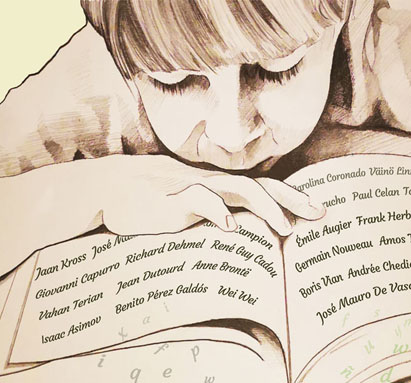 Jaan Kross José
Giovanni Capurro Richard Dehmel René Guy Cadou
Vahan Terian Jean Dutourd Anne Brontë
Isaac Asimov Benito Pérez Galdós Wei Wei
arolina Coronado Väinö Lin
Paul Celan
Émile Augier Frank Herb
Germain Nouveau Amos
Boris Vian Andrée Chedi
José Mauro De Vas